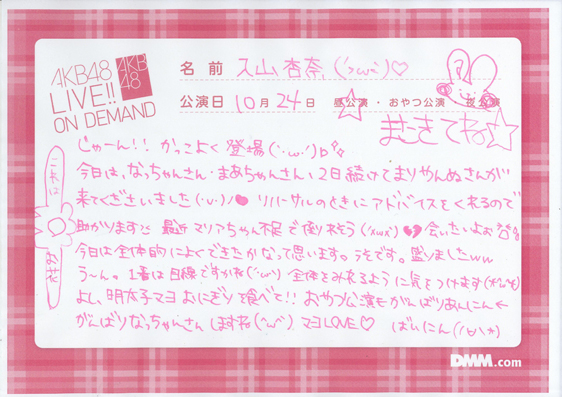 AKB48
LIVE!!
ON DEMAND
AKB
48
名前 入山 杏奈 (´>ω<`)♡
公演日 10月24日 昼公演・おやつ公演 夜公演
またきてね☆
じゃーん!! かっこよく登場(`・ω・´)
今日は、なっちゃんさん・まあちゃんさん、2日続けてまりやんぬさんが
来てくださいました(・ω・)ノ♥ リハーサルのときにアドバイスをくれるので
助かります 最近マリアちゃん不足で倒れそう(´×ω×`)💔会いたいよぉ
今日は全体的によくできたかなって思います。うそです。盛りましたww
う〜ん。1番は目線ですかね(´・ω・`) 全体をみれるように気をつけます
よし、明太子マヨおにぎり食べて!! おやつ公演もがんばりあんにん←
がんばりなっちゃんさんしますね(^ω^) マヨLOVE♡ ばいにん
これは
お花
DMM.com